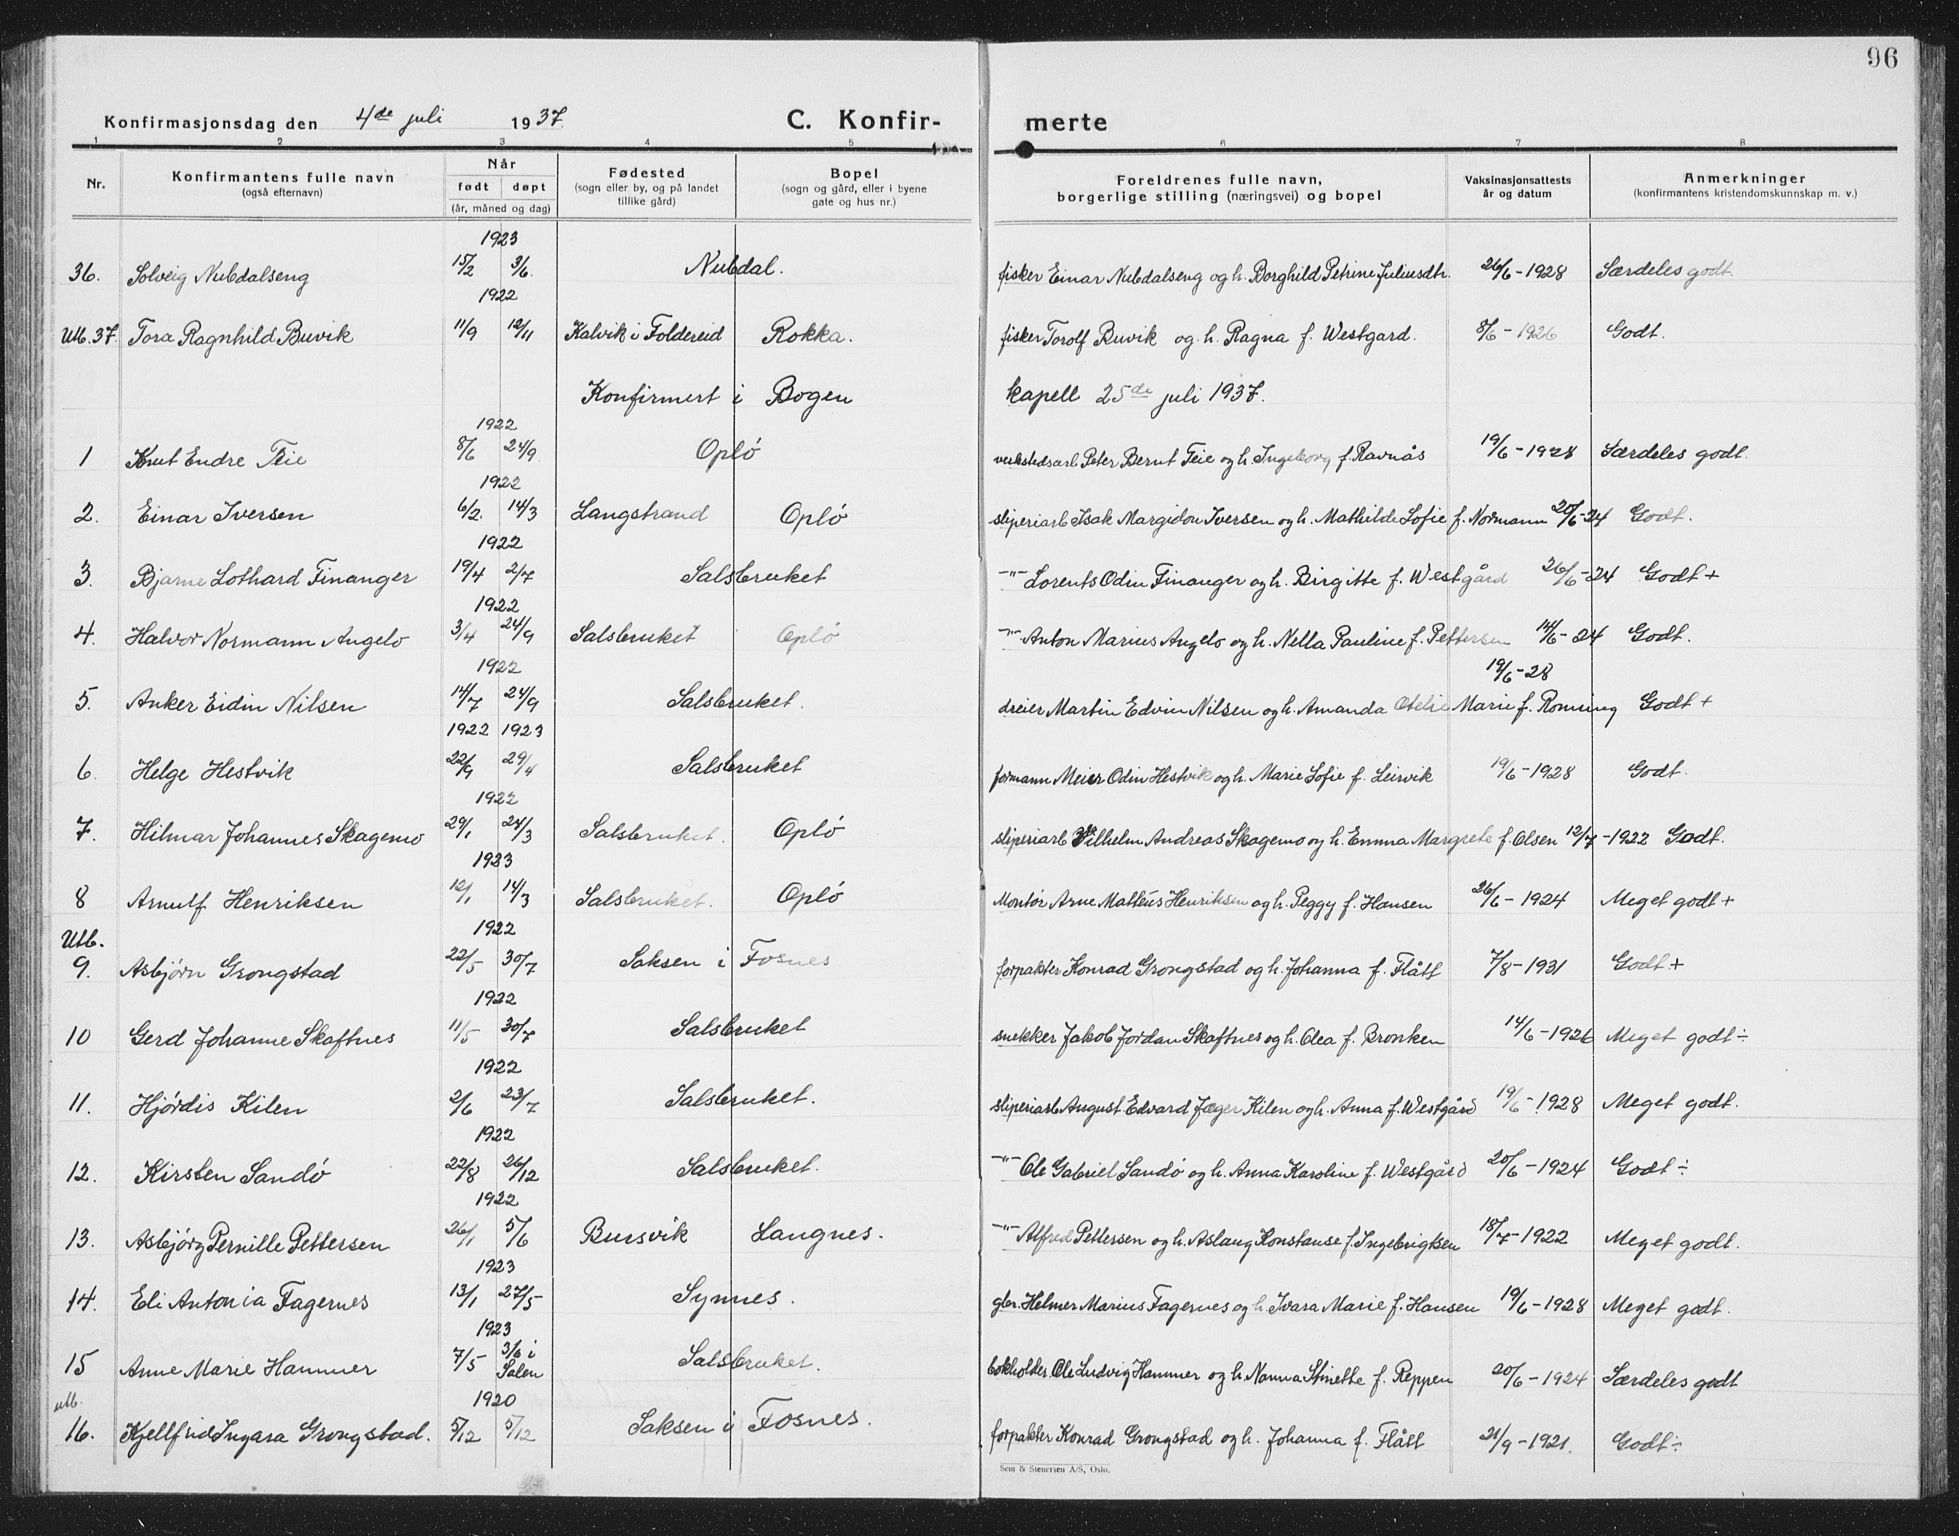 96
Konfirmasjonsdag den 4de juli 1937. C. Konfir- merte
1 2 3 4 5 6 7 8
Nr. Konfirmantens fulle navn (også efternavn) Når født døpt (år, måned og dag) Fødested (sogn eller by, og på landet tillike gård) Bopel (sogn og gård, eller i byene gate og hus nr.) Foreldrenes fulle navn, borgerlige stilling (næringsvei) og bopel Vaksinasjonsattests år og datum Anmerkninger (konfirmantens kristendomskunnskap m. v.)
1923
36. Solveig Nubdalseng 15/2 3/6. Nubdal. fisker Einar Nubdalseng og h. Borghild Petrine Juliusdtr. 26/6-1928 Særdeles godt.
1922
Utb. 37. Tora Ragnhild Buvik 11/9 12/11 Kalvik i Foldereid Rokka. fisker Torolf Buvik og h. Ragna f. Westgard. 8/6-1926 Godt.
Konfirmert i Bogen kapell 25de juli 1937.
1922
1 Knut Endre Teie 8/6 24/9 Opló verkstedsarb Peter Bernt Teie og h. Ingeborg f. Ravnås 19/6-1928 Særdeles godt.
1922
2. Einar Iversen 6/2. 14/3 Langstrand Opló sliperiarb Isak Margidon Iversen og h. Mathilde Sofie f. Normann 20/6-24 Godt.
1922
3. Bjarne Lothard Finanger 19/4 2/7 Salsbruket -"- Lorents Odin Finanger og h. Birgitte f. Westgård 26/6-24 Godt +
1922
4. Halvor Normann Angelo 3/4 24/9 Salsbruket Opló -"- Anton Marius Angelo og h. Nella Pauline f. Pettersen 14/6-24 Godt.
1922 19/6-28
5. Anker Eidin Nilsen 14/7 24/9 Salsbruket. dreier Martin Edvin Nilsen og h. Amanda Otelie Marie f. Romsing Godt +
1922 1923
6. Helge Hestvik 22/9 29/4 Salsbruket formann Meier Odin Hestvik og h. Marie Sofie f. Leirvik 19/6-1928 Godt.
1922
7. Hilmar Johannes Skagemo 29/1 24/3 Salsbruket. Opló sliperiarb Vilhelm Andreas Skagemo og h. Emma Margrete f. Olsen 12/7-1922 Godt.
1923
8 Arnulf Henriksen 12/1 14/3 Salsbruket. Opló Montør Arne Mattéus Henriksen og h. Peggy f. Hansen 26/6-1924 Meget godt +
1922
Utb. 9. Asbjørn Grongstad 22/5 30/7 Saksen i Fosnes forpakter Konrad Grongstad og h. Johanna f. Flått 7/8-1931 Godt +
1922
10 Gerd Johanne Skaftnes 11/5 30/7 Salsbruket snekker Jakob Jordan Skaftnes og h. Olea f. Bronken 14/6-1926 Meget godt ÷
1922
11. Hjórdis Kilen 2/6 23/7 Salsbruket. sliperiarb August Edvard Jæger Kilen og h. Anna f. Westgård 19/6-1928 Meget godt.
1922
12. Kirsten Sandó 22/8 26/12 Salsbruket. -"- Ole Gabriel Sandó og h. Anna Karoline f. Westgård 20/6-1924 Godt ÷
1922
13. Asbjórg Pernille Pettersen 26/1 5/6 Buvsvik Langnes. -"- Alfred Pettersen og h. Aslaug Konstanse f. Ingebrigtsen 18/7-1922 Meget godt.
1923
14. Eli Antonia Fagernes 13/1 27/5 Synnes. gbr. Helmer Marius Fagernes og h. Ivara Marie f. Hansen 19/6-1928 Meget godt.
1923
15 Anne Marie Hammer 7/5 3/6 i Salen Salsbruket. bokholder Ole Ludvig Hammer og h. Nanna Stinette f. Reppen 20/6-1924 Særdeles godt
1920
utb. 16. Kjellfrid Ingara Grongstad. 5/12 5/12 Saksen i Fosnes. forpakter Konrad Grongstad og h. Johanna f. Flått 21/9-1921. Godt ÷
Sem & Stenersen A/S, Oslo.